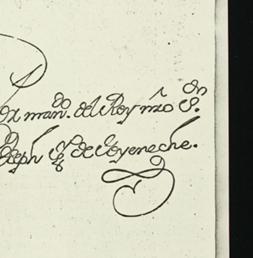 man.do del Rey nr̃o S.or
Joseph Ig.o de Goyeneche.